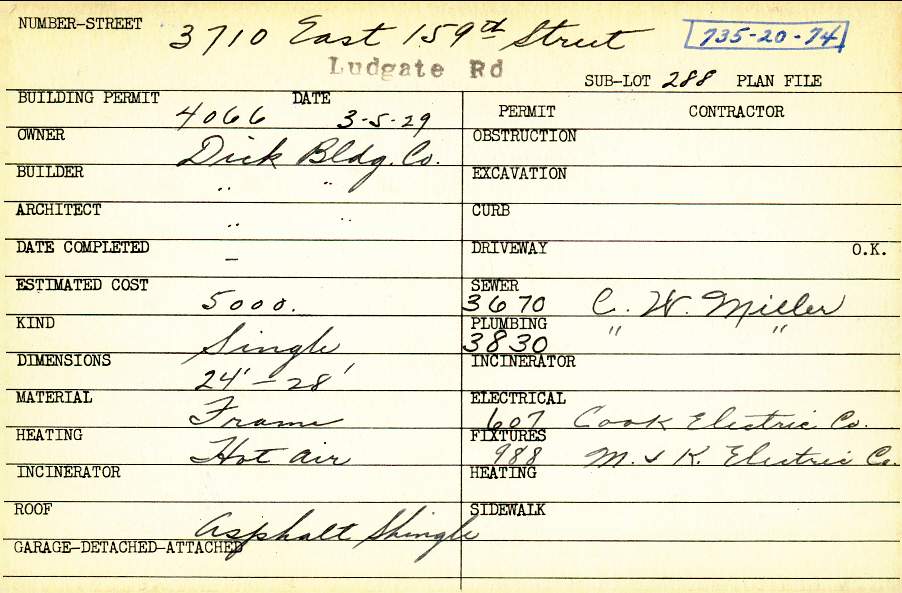 NUMBER-STREET 3710 East 159th Street 735-20-74
Ludgate Rd
SUB-LOT 288 PLAN FILE
BUILDING PERMIT 4066 DATE 3-5-29
PERMIT CONTRACTOR
OWNER Dick Bldg. Co.
OBSTRUCTION
BUILDER " "
EXCAVATION
ARCHITECT " "
CURB
DATE COMPLETED –
DRIVEWAY O.K.
ESTIMATED COST 5000.
SEWER 3670 C. W. Miller
KIND Single
PLUMBING 3830 " "
DIMENSIONS 24' – 28'
INCINERATOR
MATERIAL Frame
ELECTRICAL 607 Cook Electric Co.
HEATING Hot air
FIXTURES 988 M. & K. Electric Co.
INCINERATOR
HEATING
ROOF Asphalt Shingle
SIDEWALK
GARAGE-DETACHED-ATTACHED